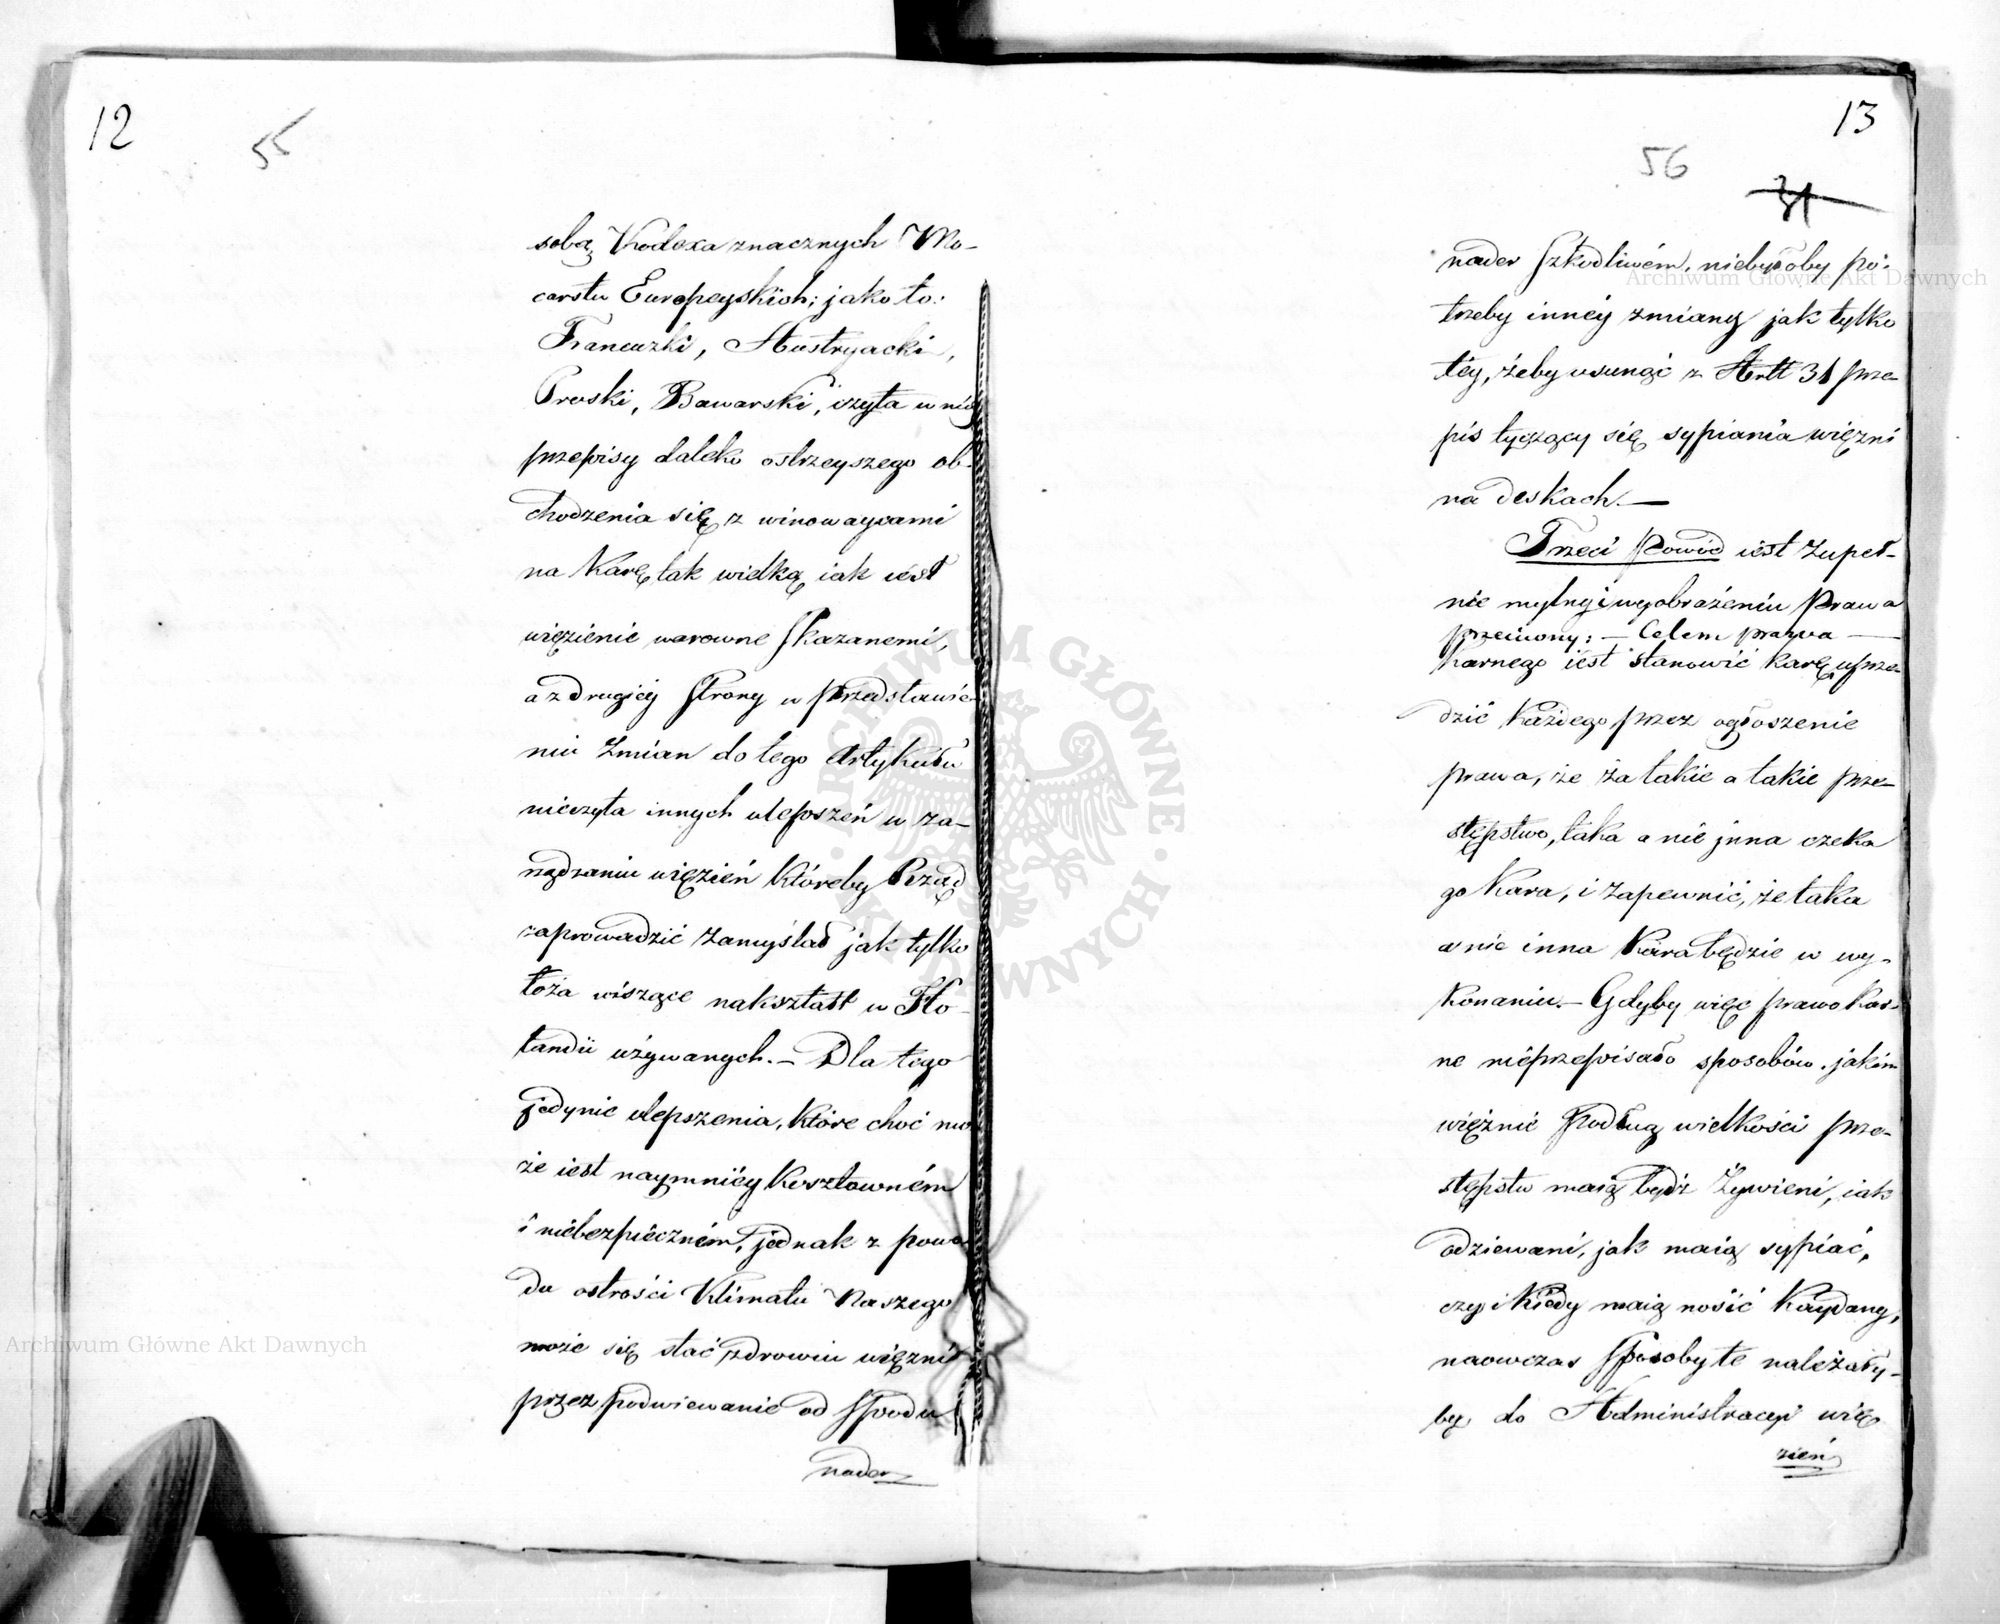 12
55
sobą Kodexa znacznych Mo-
carstw Europeyskich; jako to:
Francuzki, Austryacki,
Pruski, Bawarski, czyta w nich
przepisy daleko ostrzeyszego ob-
chodzenia się z winowaycami
na Karę tak wielką iak iest
więzienie warowne skazanemi,
a z drugiéy strony w przedstawie-
niu Zmian do tego Artykułu
nieczyta innych ulepszeń w za-
rządzaniu więzień któreby Rząd
zaprowadzić zamyślał jak tylko
łoża wiszące nakształt w Ho-
landii używanych. — Dla tego
jedynie ulepszenia, które choć mo-
że iest naymniéy kosztowném
i niebezpieczném, jednak z powo-
du ostrości Klimatu Naszego
może się stać zdrowiu więzni
przez podwiewanie od spodu
nader
13
56
31
nader szkodliwém, niebyłoby po-
trzeby innéy zmiany jak tylko
téy, żeby usunąć z Artt 31 prze-
pis tyczący się sypiania więzni
na deskach. —
Trzeci Powód iest Zupeł-
nie mylny i wyobrażeniu Prawa
przeciwny: — Celem prawa —
Karnego iest stanowić karę, uprze-
dzić każdego przez ogłoszenie
prawa, że za takie a takie prze-
stępstwo, taka a nie inna czeka
go Kara, i zapewnić, że taka
a nie inna Kara będzie w wy-
konaniu. — Gdyby więc prawo Kar-
ne nieprzepisało sposobów, jakim
więźnie podług wielkości prze-
stępstw maią bydź Żywieni, iak
odziewani, jak maią sypiać,
czy i kiedy maią nosić Kaydany,
naowczas sposoby te należały-
by do Administracyi wię
zień
Archiwum Główne Akt Dawnych
Archiwum Główne Akt Dawnych
ARCHIWUM GŁÓWNE AKT DAWNYCH